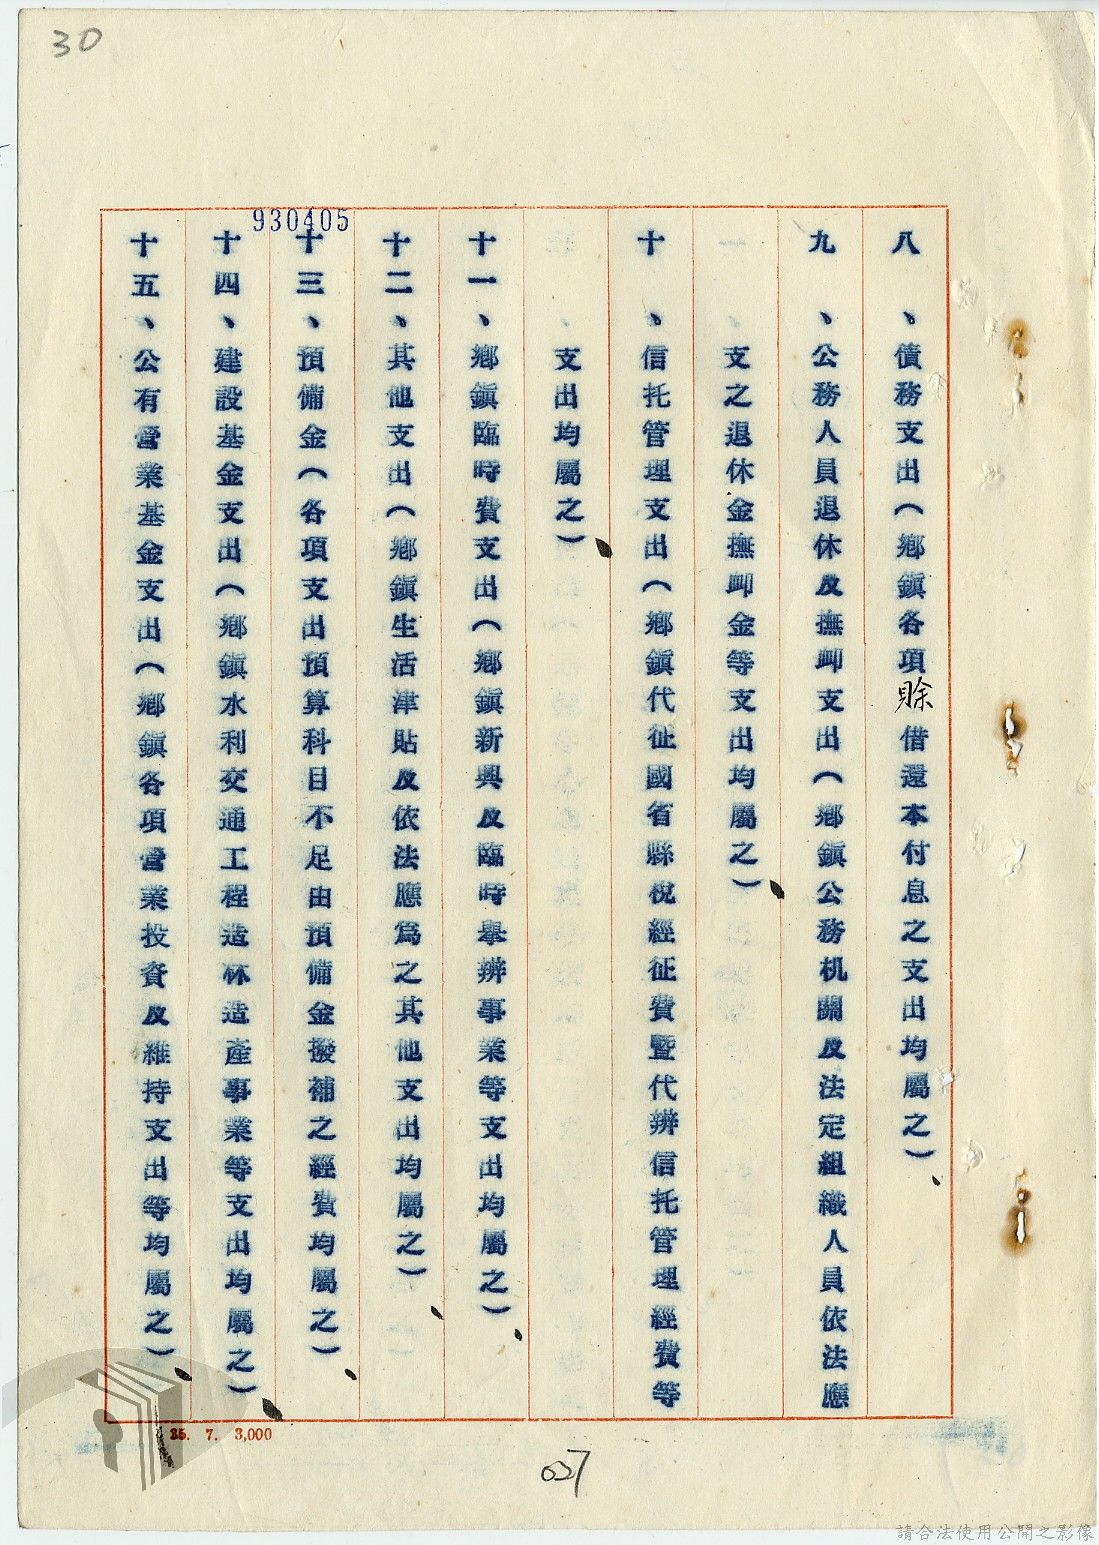 30
930405
八、債務支出（鄉鎮各項賒借還本付息之支出均屬之）
九、公務人員退休及撫卹支出（鄉鎮公務机關及法定組織人員依法應
支之退休金撫卹金等支出均屬之）
十、信托管理支出（鄉鎮代征國省縣稅經征費暨代辦信托管理經費等
支出均屬之）
十一、鄉鎮臨時費支出（鄉鎮新興及臨時舉辦事業等支出均屬之）
十二、其他支出（鄉鎮生活津貼及依法應為之其他支出均屬之）
十三、預備金（各項支出預算科目不足由預備金撥補之經費均屬之）
十四、建設基金支出（鄉鎮水利交通工程造林造產事業等支出均屬之）
十五、公有營業基金支出（鄉鎮各項營業投資及維持支出等均屬之）
35. 7. 3,000
027
請合法使用公開之影像